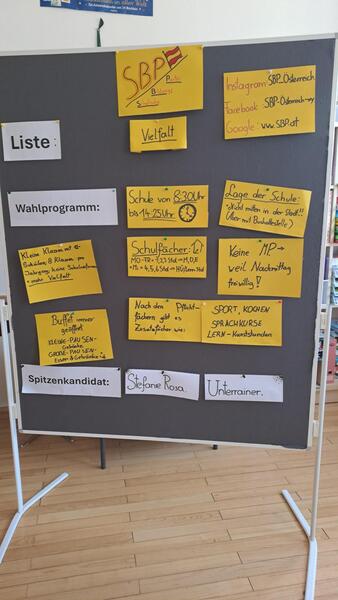 SBP
Bildungs
Schulische
Instagram: SBP_Österreich
Facebook: SBP-Österreich
Google: www.SBP.at
Liste :
Vielfalt
Wahlprogramm:
Schule von 8:30 Uhr
bis 14:25 Uhr
Lage der Schule:
Nicht mitten in der Stadt!!
(Aber mit Bushaltestelle)
Kleine Klassen
Schülern, 8 Klassen pro
Jahrgang, keine Schuluniform
mehr Vielfalt
Schulfächer:
MO-FR
Keine MP→
weil Nachmittag
freiwillig!
Buffet immer
geöffnet
KLEINE-PAUSEN-
Gebäcke
GROßE-PAUSEN-
Essen & Getränke
Nach den Pflicht-
fächern gibt es
Zusatzfächer wie:
SPORT, KOCHEN
SPRACHKURSE
LERN-Kunststunden
Spitzenkandidat:
Stefanie Rosa
Unterrainer.